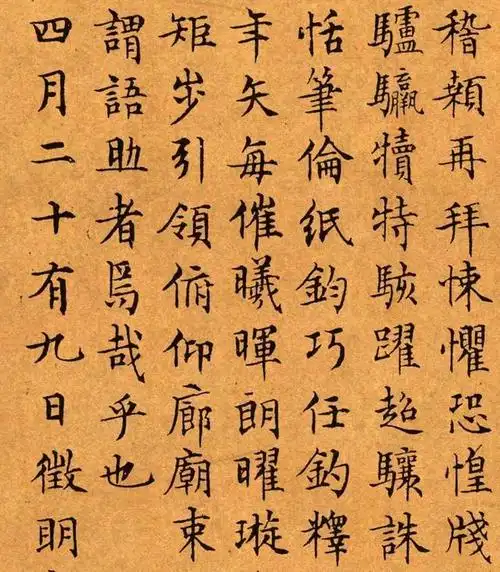 稽顙再拜悚懼恐惶牋
驢驘犢特駭躍超驤誅
恬筆倫紙鈞巧任釣釋
年矢每催曦暉朗曜璇
矩步引領俯仰廊廟束
謂語助者焉哉乎也
四月二十有九日徵明